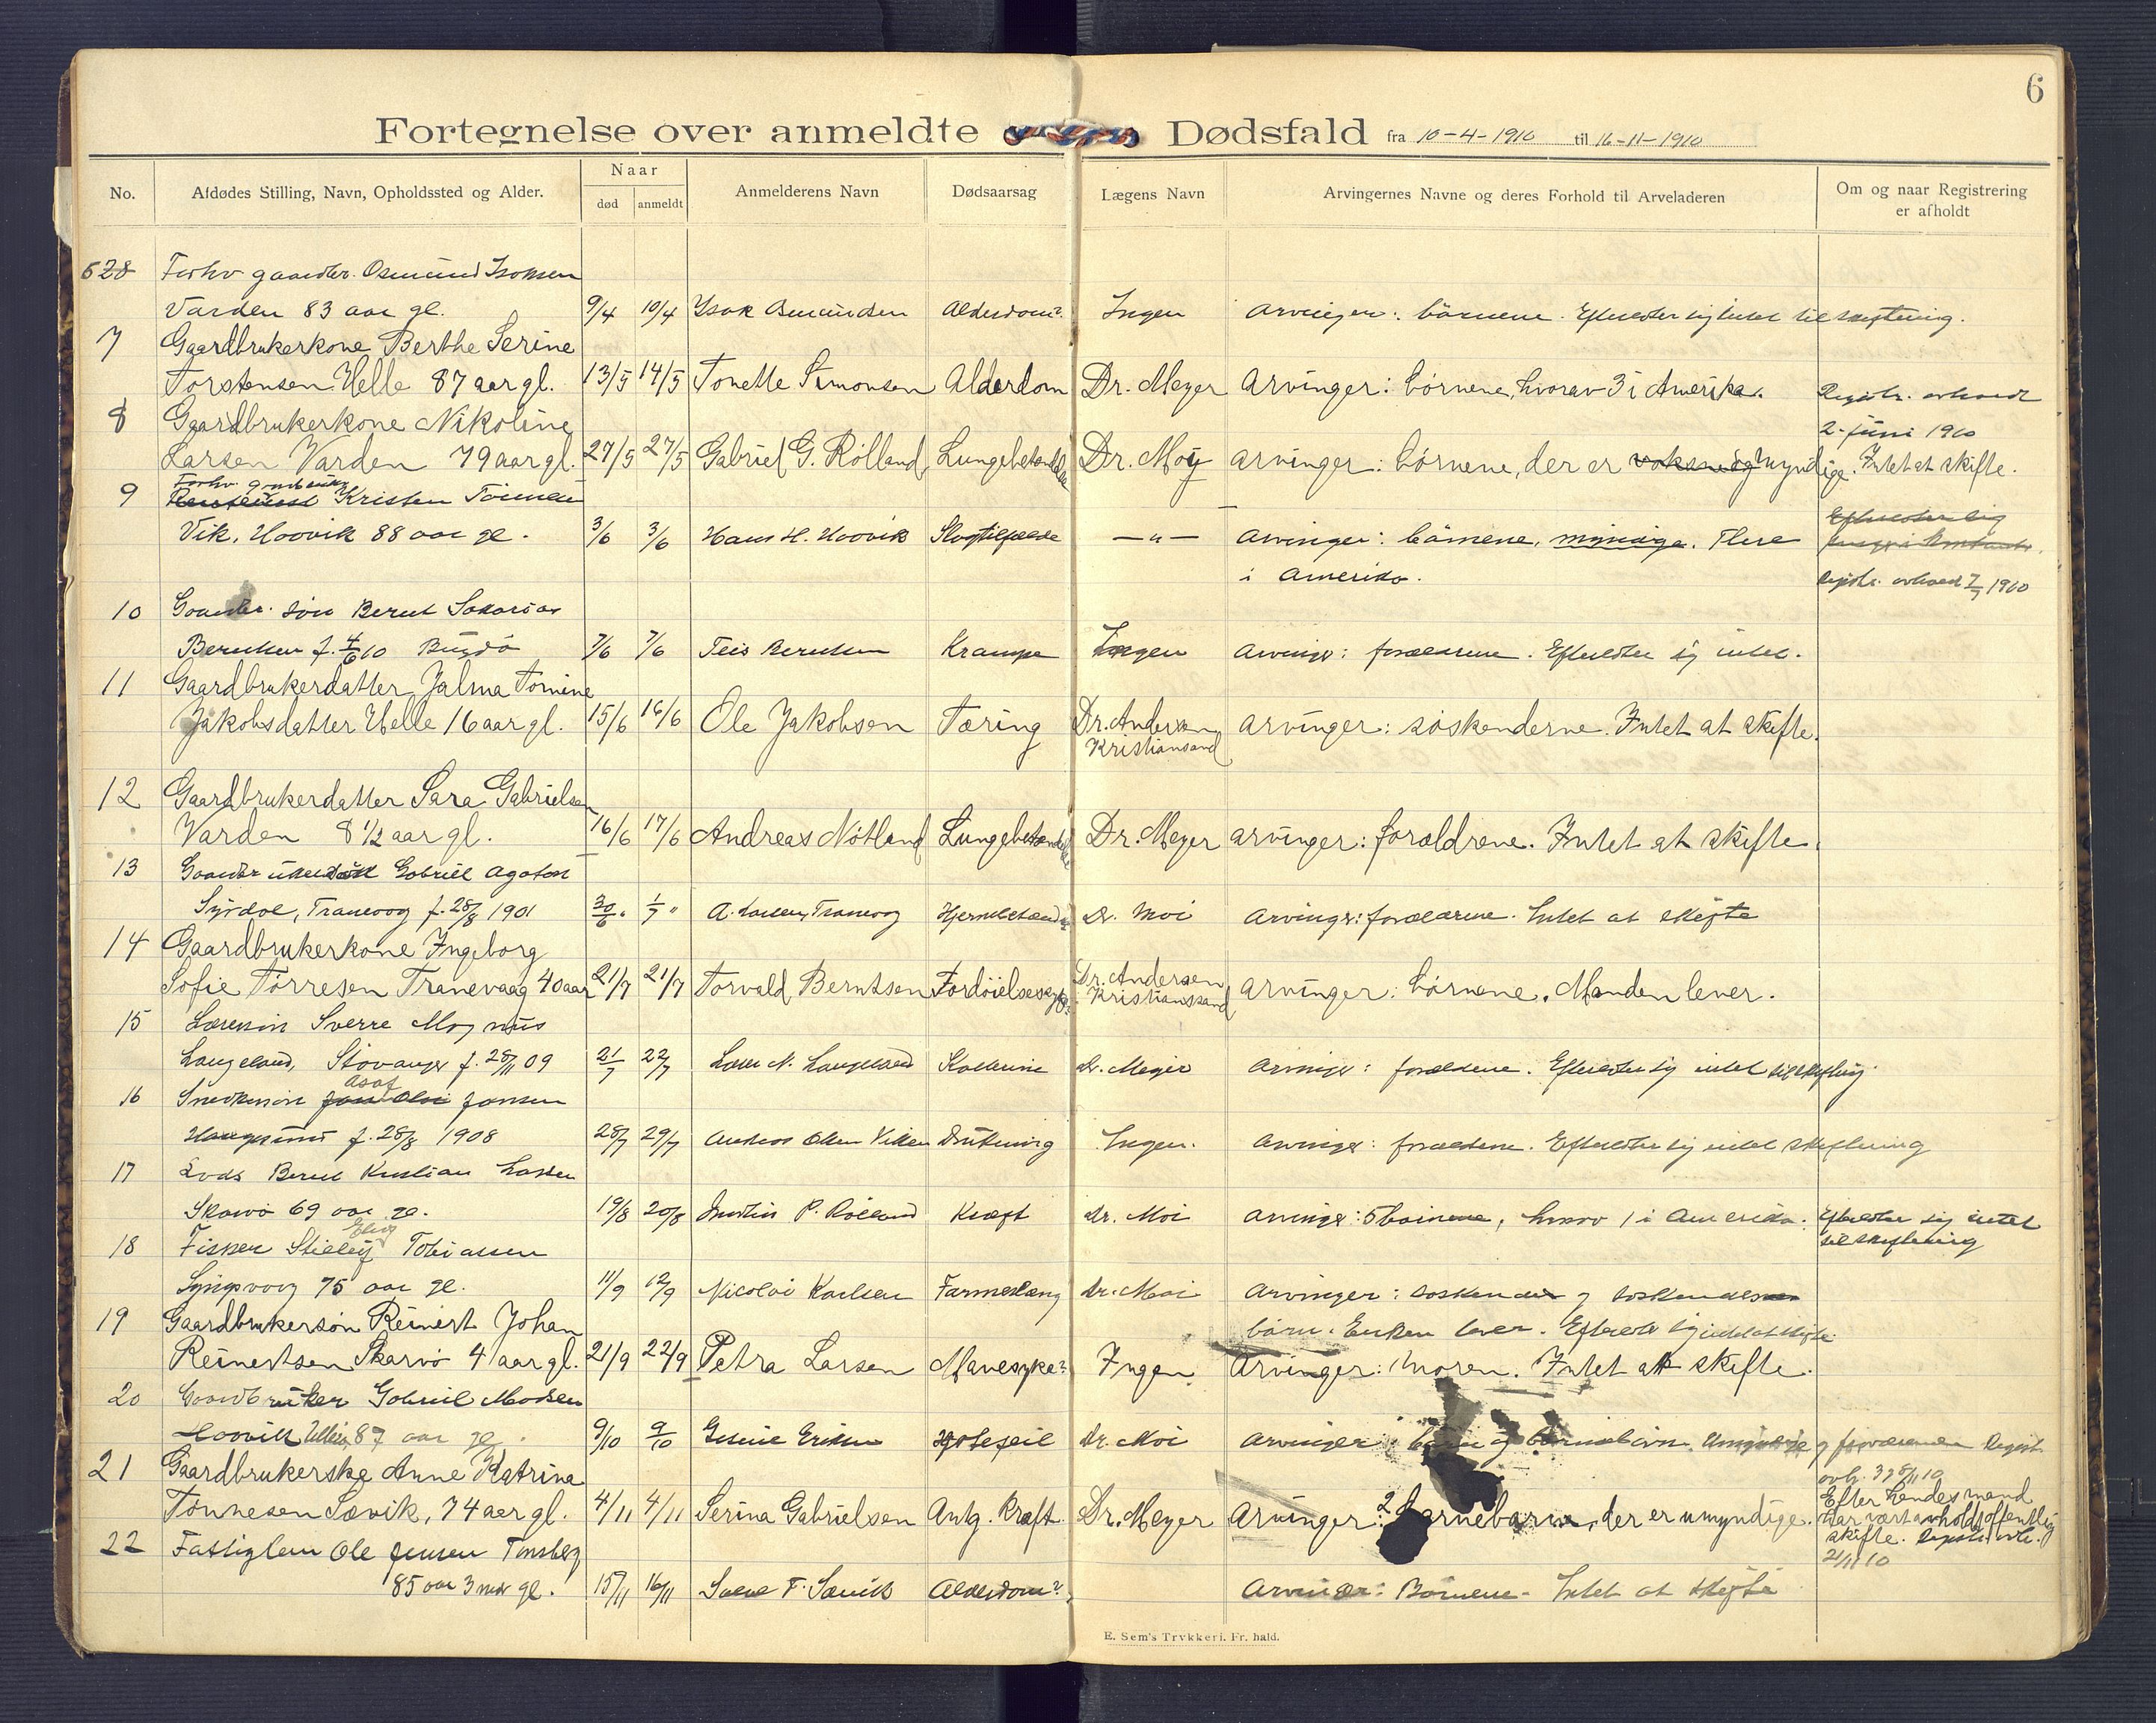 6
Fortegnelse over anmeldte Dødsfald fra 10-4-1910 til 16-11-1910
No. Afdødes Stilling, Navn, Opholdssted og Alder. Naar død anmeldt Anmelderens Navn Dødsaarsag Lægens Navn Arvingernes Navne og deres Forhold til Arveladeren Om og naar Registrering er afholdt
628 Forhv gaardbr. Osmund Isaksen
Varden 83 aar gl. 9/4 10/4 Isak Osmundsen Alderdom? Ingen Arvinger: börnene. Efterlater sig intet til skiftning.
7 Gaardbrukerkone Berthe Serine
Torstensen Helle 87 aar gl. 13/5 14/5 Tonette Simonsen Alderdom Dr. Meyer Arvinger: börnene, hvorav 3 i Amerika. Registr. avholdt
2. juni 1910
8 Gaardbrukerkone Nikoline
Larsen Varden 79 aar gl. 27/5 27/5 Gabriel G. Rölland Lungebetændelse Dr. Moy arvinger: börnene, der er voksne og myndige. Intet at skifte.
9 Forhv. gardbruker Kristen Tönnesen
Vik, Hoovik 88 aar gl. 3/6 3/6 Hans H. Hoovik Slagtilfælde —"— Arvinger: börnene, myndige. Flere
i Amerika. Registr. avholdt 7/7 1910
10 Gaardbr. sön Bernt Sakarias
Berntsen f. 4/6 10 Buydö 7/6 7/6 Teis Berntsen Krampe Ingen Arvinger: forældrene. Efterlater sig intet.
11 Gaardbrukerdatter Jalma Tomine
Jakobsdatter Helle 16 aar gl. 15/6 16/6 Ole Jakobsen Tæring Dr. Andersen
Kristiansand arvinger: söskenderne. Intet at skifte.
12 Gaardbrukerdatter Sara Gabrielsen
Varden 8 1/2 aar gl. 16/6 17/6 Andreas Nötland Lungebetændelse Dr. Meyer arvinger: forældrene. Intet at skifte.
13 Gaardbruker Gabriel Agaton
Syrdal, Tranevog f. 28/8 1901 30/6 1/7 A. Larsen, Tranevog Hjernebetændelse Dr. Moi Arvinger: forældrene. Intet at skifte
14 Gaardbrukerkone Ingeborg
Sofie Törresen Tranevaag 40 aar 21/7 21/7 Torvald Berntsen Fordöielsessygd. Dr. Andersen
Kristianssand arvinger: börnene. Manden lever.
15 Lærersön Sverre Magnus
Langeland, Stavanger f. 28/11 09 21/7 22/7 Lars N. Langeland Kolerine Dr. Meyer Arvinger: forældrene. Efterlater sig intet til skiftning
16 Snedkersön Asaf Jansen
Haugesund f. 28/8 1908 28/7 29/7 Andreas Olsen Viken Drukning Ingen. Arvinger: forældrene. Efterlater sig intet skiftning
17 Lods Bernt Kristian Larsen
Skarvö 69 aar gl. 19/8 20/8 P. Rölland Kræft Dr. Moi Arvinger: 5 börnene, hvorav 1 i Amerika. Efterlater sig intet
til skiftning
18 Fisker Elias Tobiassen
Syngvorg 75 aar gl. 11/9 12/9 Nicolai Karlsen Tarmeslæng Dr. Moi Arvinger: söskende og söskendes
börn. Enken lever. Efterlater sig intet at skifte
19 Gaardbrukersön Reinert Johan
Reinertsen Skarvö 4 aar gl. 21/9 22/9 Petra Larsen Mavesyke? Ingen Arvinger: moren. Intet at skifte.
20 Gaardbruker Gabriel Madsen
Hoovik 87 aar gl. 9/10 9/10 Gesine Eriksen Hjertefeil Dr. Moi Arvinger: börn og barnebörn. Umyndige og fraværende Registr.
avh. 8/11 10
21 Gaardbrukerske Anne Katrina
Tönnesen Sævik, 74 aar gl. 4/11 4/11 Serina Gabrielsen Antg. kræft. Dr. Meyer Arvinger: 2 barnebarn, der er umyndige. Efter hendes mand
har vært avholdt offentlig
skifte. Registr. avh.
21/11 10
22 Fattiglem Ole Jensen Tonsberg
85 aar 3 mdr gl. 15/11 16/11 F. Sævik Alderdom? Arvinger: Börnene. Intet at skifte
E. Sem's Trykkeri. Fr. hald.